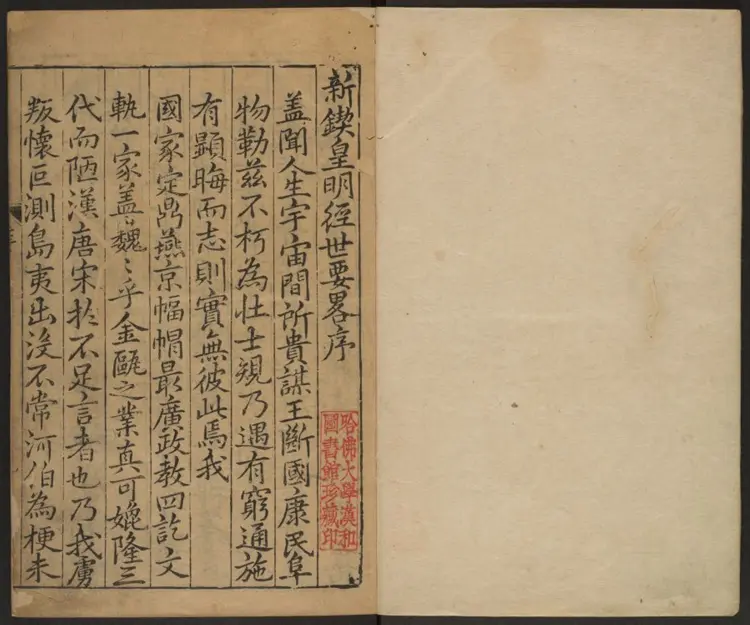 新鍥皇明經世要畧序
盖聞人生宇宙間所貴謀王斷國康民阜
物勒茲不朽為壮士規乃遇有窮通施
有顯晦而志則實無彼此焉我
國家定鼎燕京幅㡌最廣政教四訖文
軌一家盖魏〻乎金甌之業真可媲隆三
代而陋漢唐宋於不足言者也乃我虜
叛懷叵測島夷出沒不常河伯為梗未
哈佛大學漢和
圖書館珍藏印